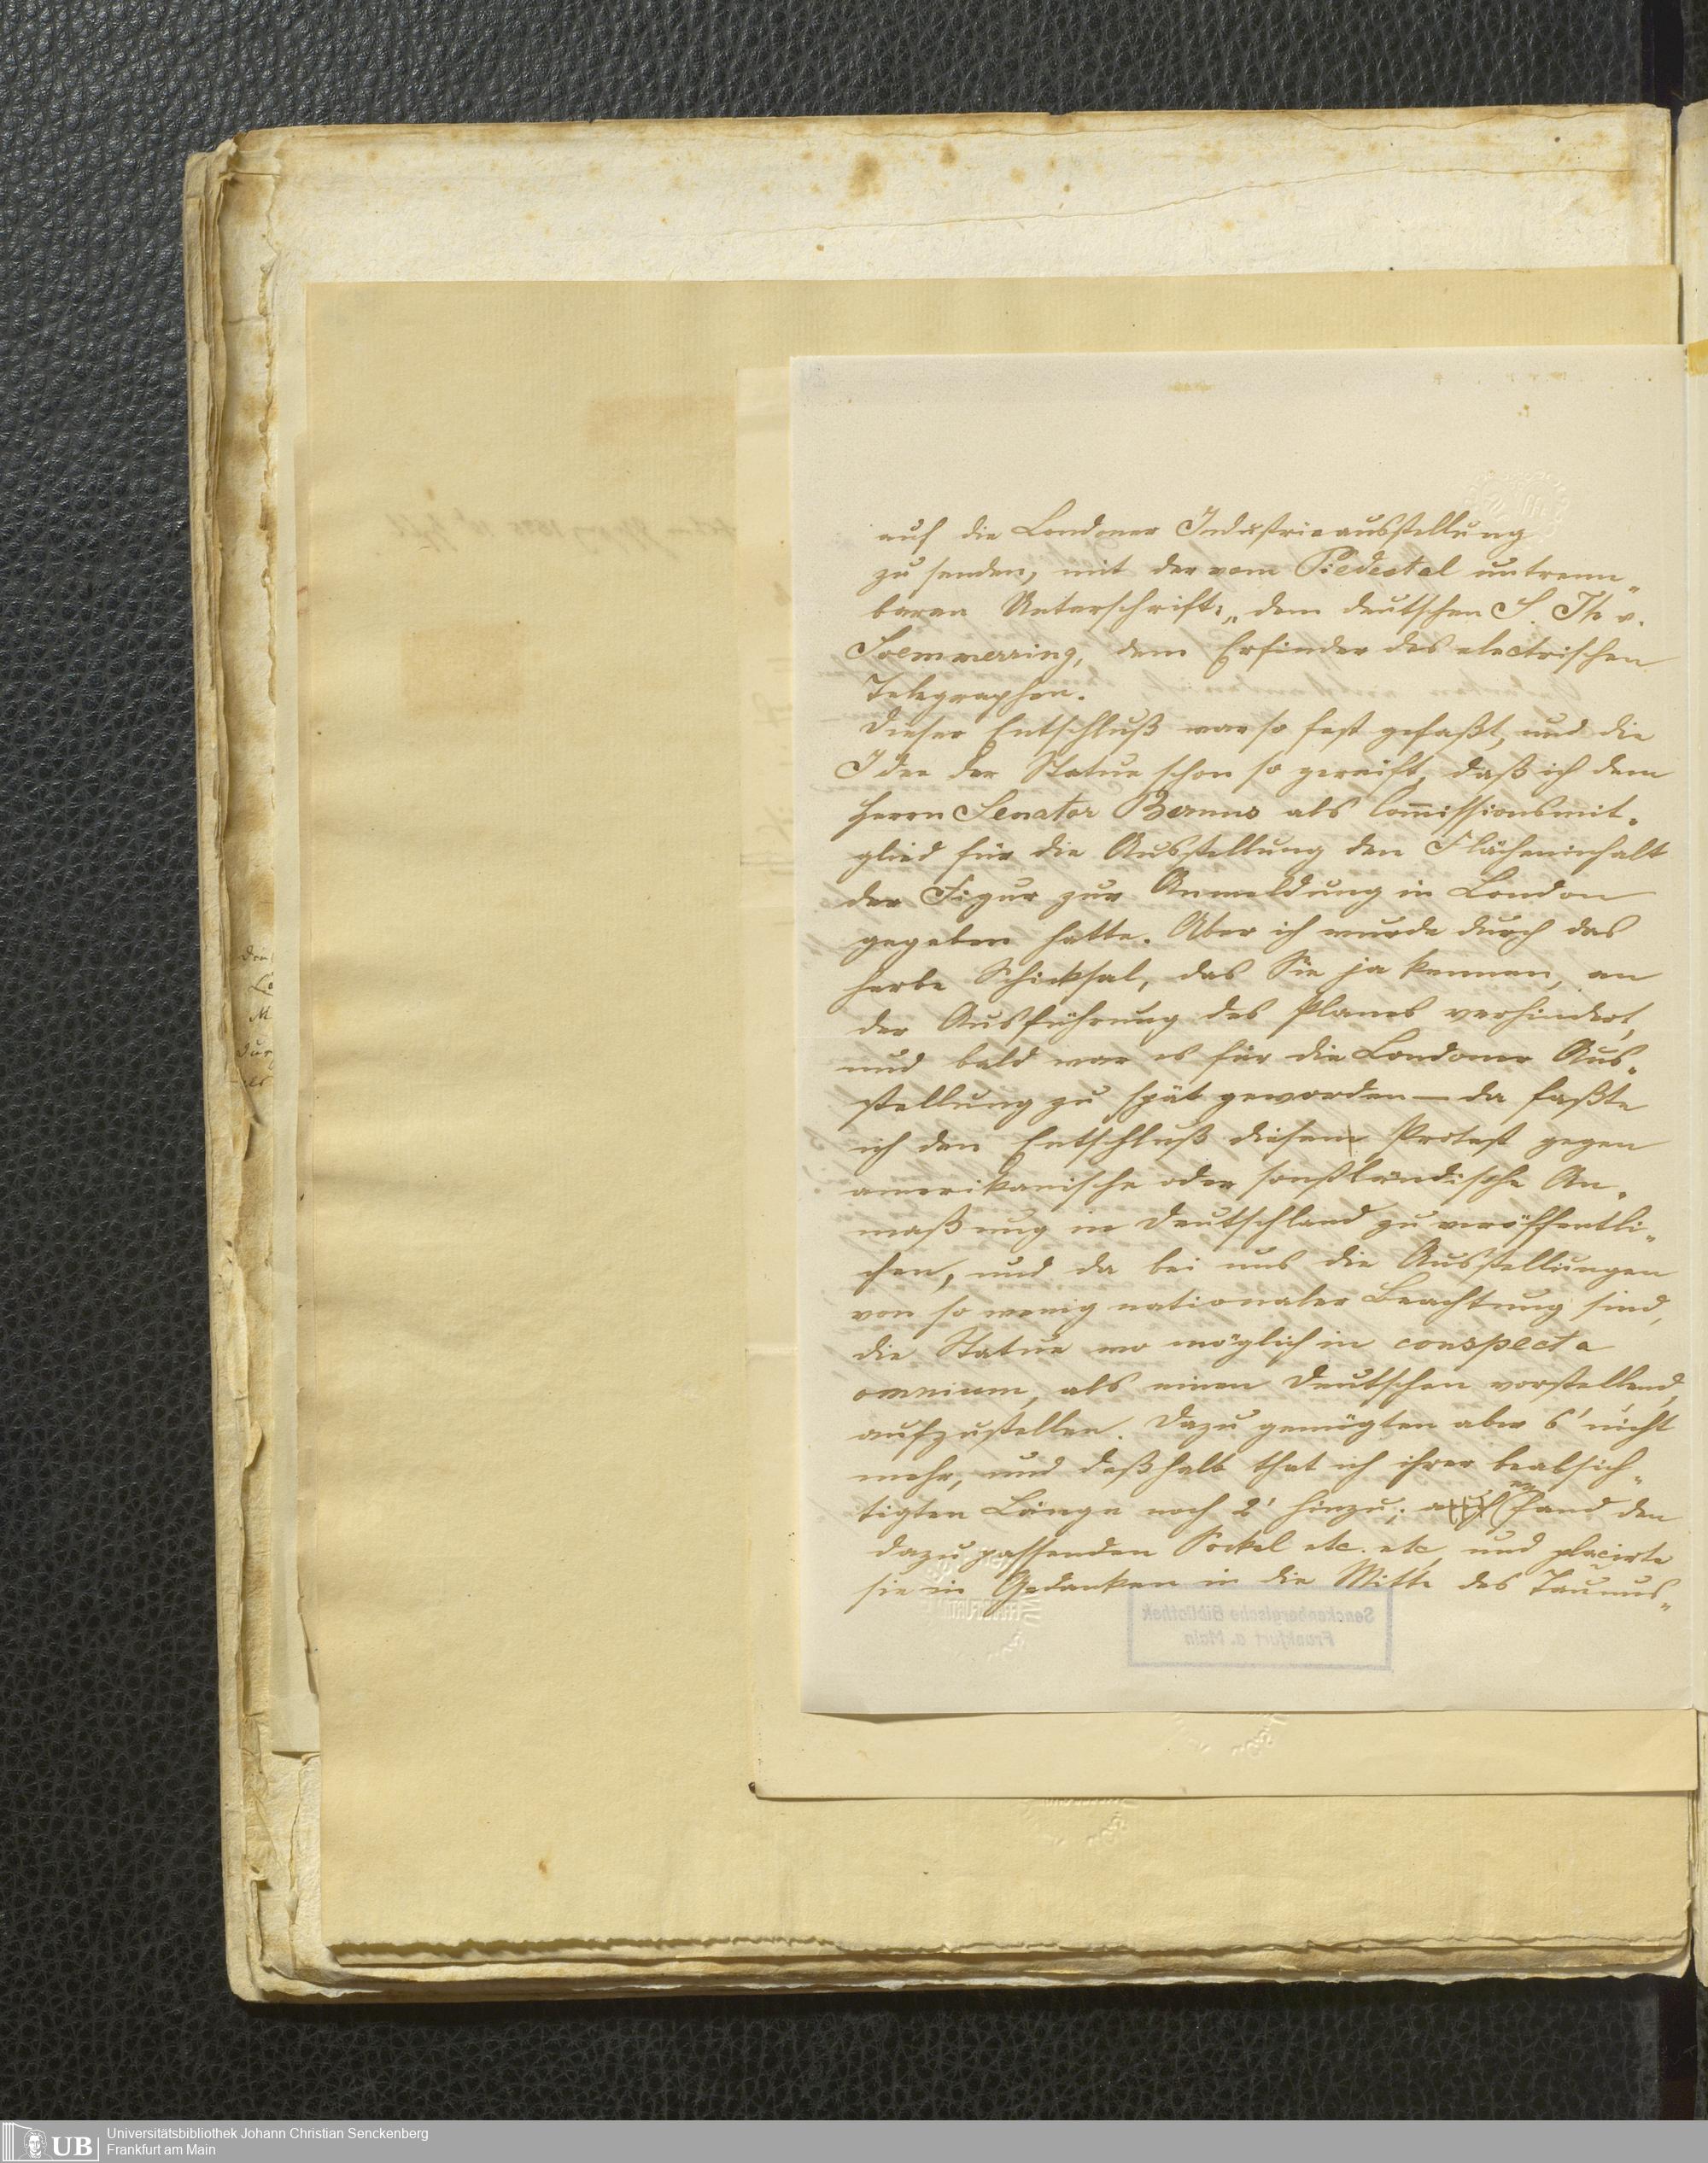 auf die Londoner Industrieausstellung
zu senden, mit der vom Piedestal untrenn„
baren Unterschrift: „dem deutschen S. Th. v.
Soemmerring, dem Erfinder des electrischen
Telegraphen.
Dieser Entschluß war so fest gefaßt, und die
Idee der Statue schon so gereift, daß ich dem
Herrn Senator Bernus als Com̅issionsmit„
glied für die Ausstellung den Flächeninhalt
der Figur zur Anmeldung in London
gegeben hatte. Aber ich wurde durch das
herbe Schicksal, das Sie ja kennen, an
der Ausführung des Planes verhindert,
und bald war es für die Londoner Aus„
stellung zu spät geworden — da faßte
ich den Entschluß diesem Protest gegen
amerikanische oder sonstländische An„
maßung in Deutschland zu veröffentli„
chen, und da bei uns die Ausstellungen
von so wenig nationaler Beachtung sind,
die Statue wo möglich in conspectu
omnium, als einen Deutschen vorstellend,
aufzustellen. Dazu genügten aber 6' nicht
mehr, und deßhalb that ich ihrer beabsich„
tigten Länge noch 2' hinzu; fand den
dazu passenden Sockel etc. etc. und placirte
sie in Gedanken in die Mitte des Taunus„
Senckenbergische Bibliothek
Frankfurt a. Main
UB
Universitätsbibliothek Johann Christian Senckenberg
Frankfurt am Main